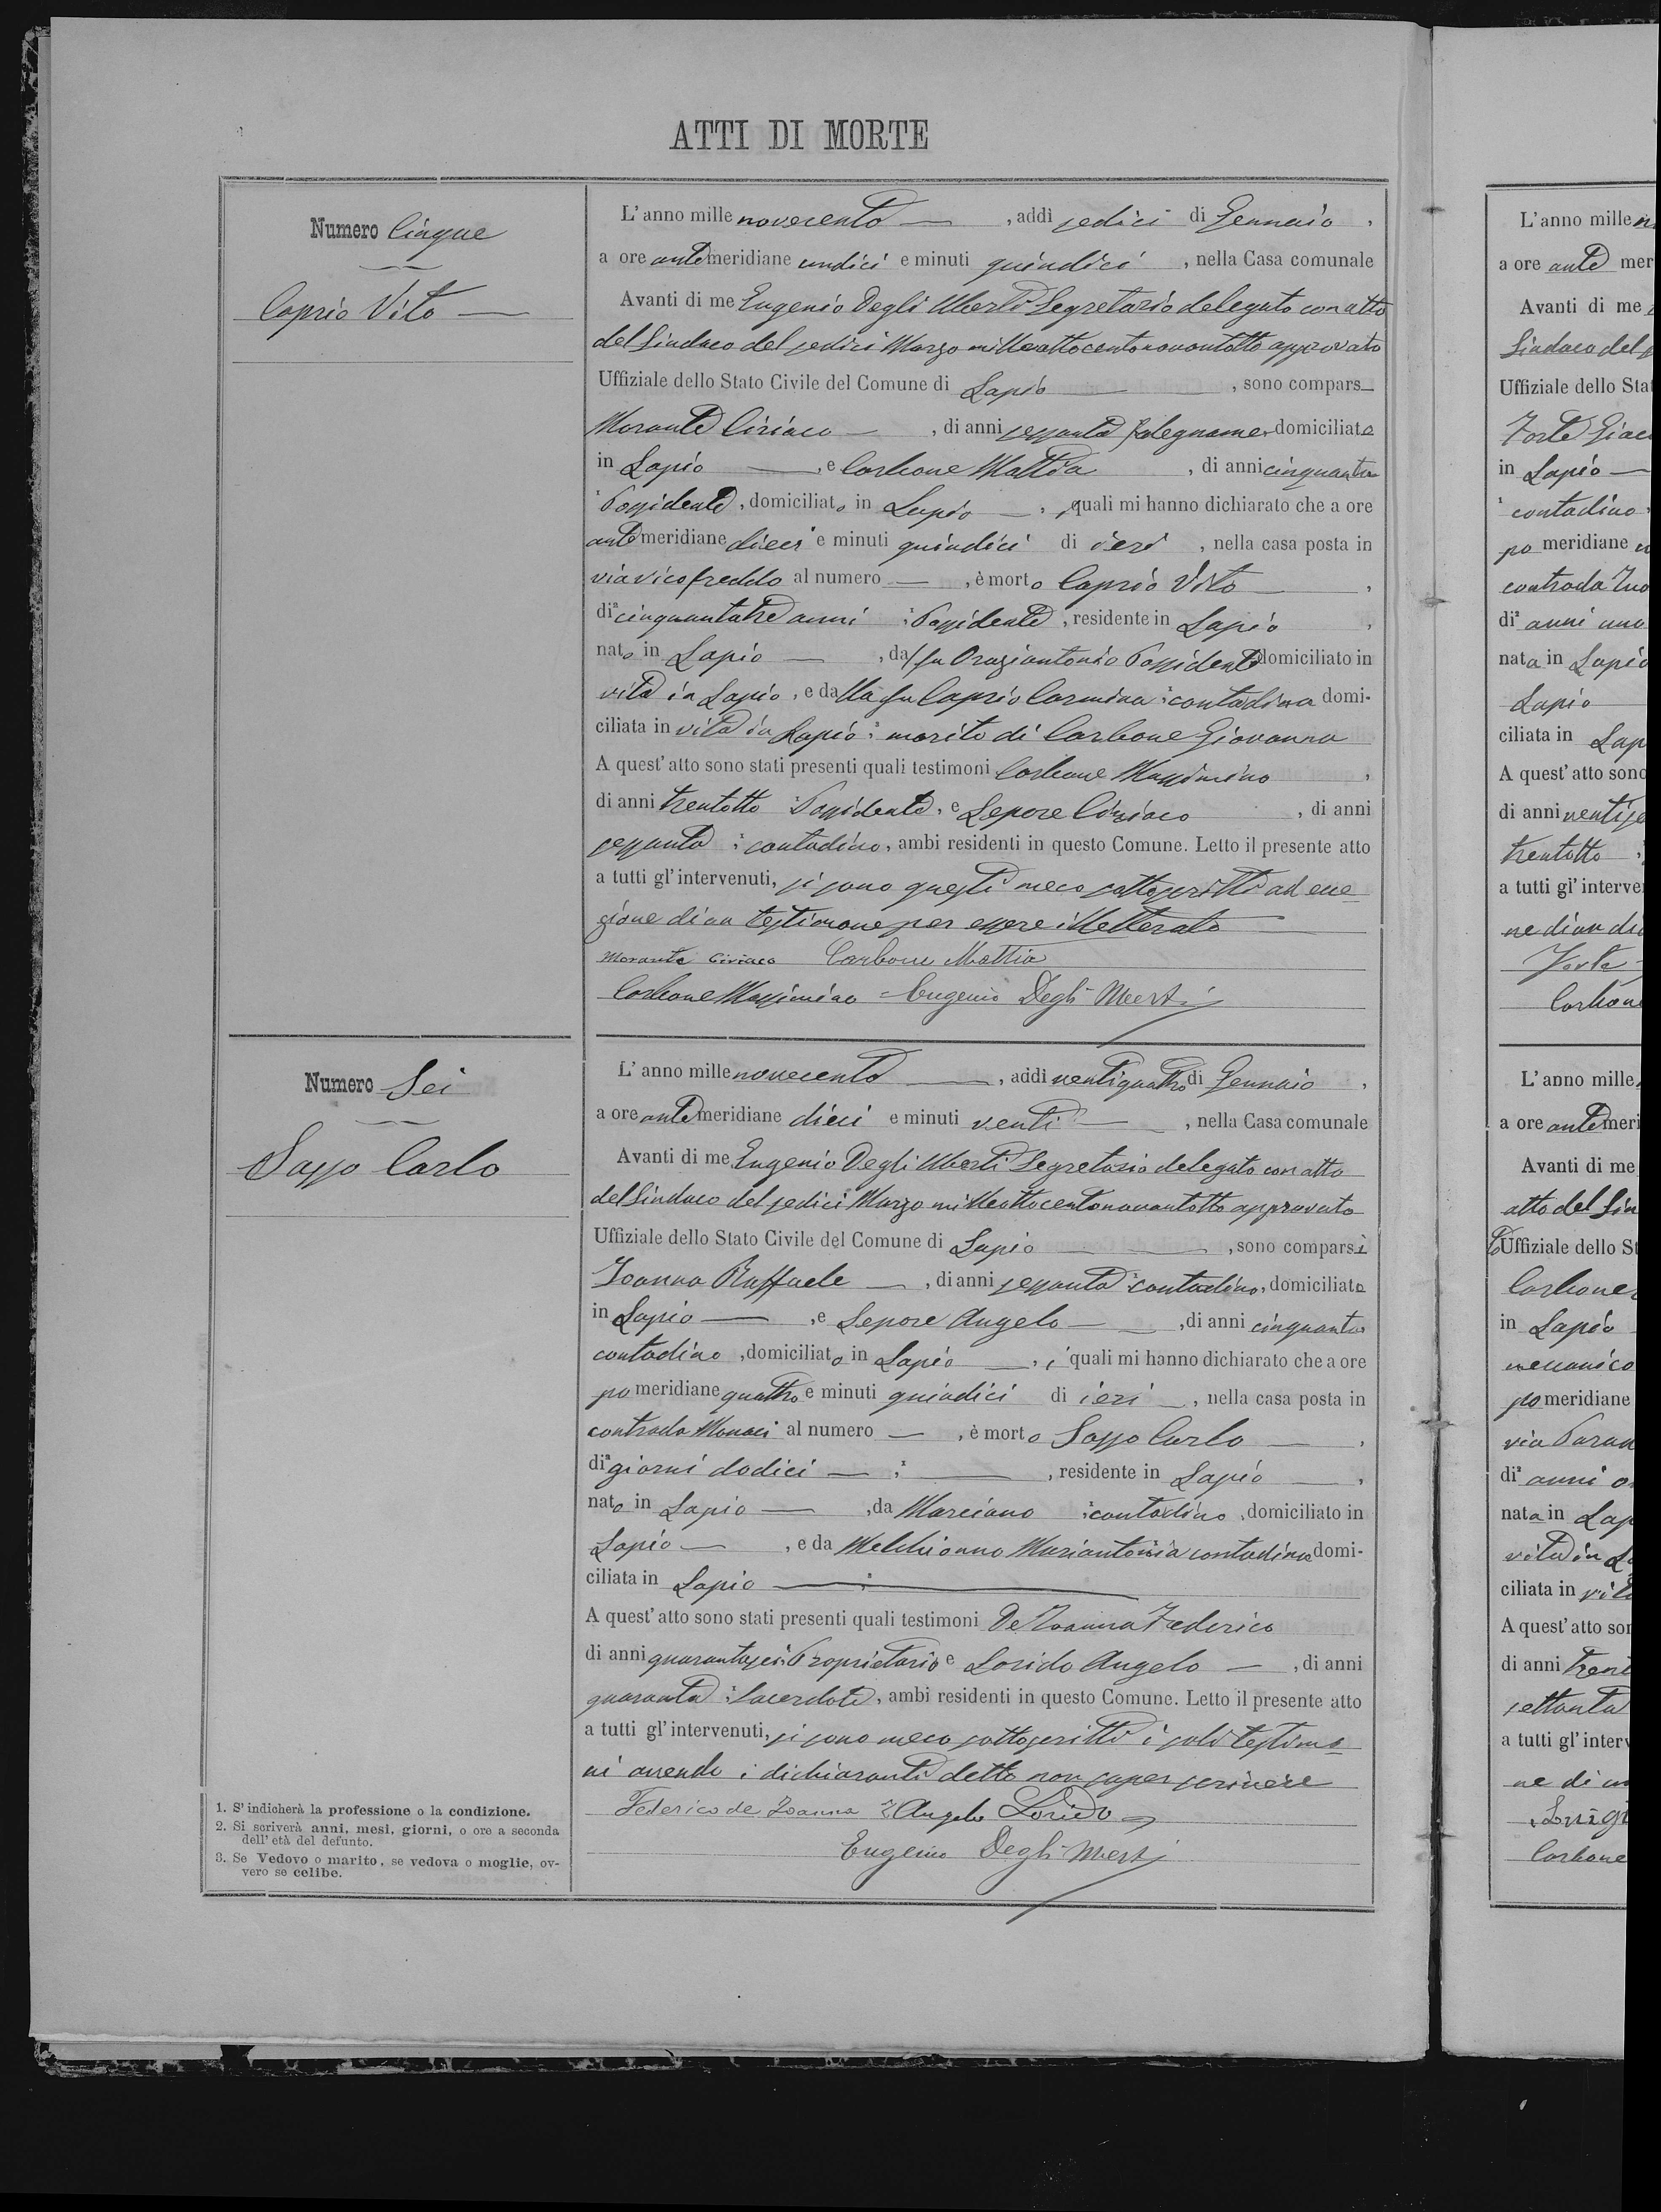 ATTI DI MORTE
Numero Cinque
Caprio Vito
L'anno mille novecento, addì sedici di Gennaio,
a ore antemeridiane undici e minuti quindici, nella Casa comunale
Avanti di me Eugenio Degli Uberti Segretario delegato con atto
del Sindaco del sedici Marzo milleottocentonovantotto approvato
Uffiziale dello Stato Civile del Comune di Lapio, sono compars
Morante Ciriaco, di anni sessanta falegname, domiciliato
in Lapio, e Carbone Mattia, di anni cinquanta
Possidente, domiciliato in Lapio, i quali mi hanno dichiarato che a ore
antemeridiane dieci e minuti quindici di ieri, nella casa posta in
via vicofreddo al numero, è morto Caprio Vito,
di cinquantatre anni Possidente, residente in Lapio,
nato in Lapio, dal fu Oraziantonio Possidente domiciliato in
vita in Lapio, e dalla fu Caprio Carmina contadina domi-
ciliata in vita in Lapio marito di Carbone Giovanna
A quest'atto sono stati presenti quali testimoni Carbone Massimino,
di anni trentotto Possidente, e Lepore Ciriaco, di anni
sessanta contadino, ambi residenti in questo Comune. Letto il presente atto
a tutti gl'intervenuti, si sono questi meco sottoscritti ad ecce-
zione di un testimone per essere illetterato
Morante Ciriaco Carbone Mattia
Carbone Massimino Eugenio Degli Uberti
Numero Sei
Sasso Carlo
L'anno mille novecento, addì ventiquattro di Gennaio,
a ore antemeridiane dieci e minuti venti, nella Casa comunale
Avanti di me Eugenio Degli Uberti Segretario delegato con atto
del Sindaco del sedici Marzo milleottocentonovantotto approvato
Uffiziale dello Stato Civile del Comune di Lapio, sono comparsi
Ioanna Raffaele, di anni sessanta contadino, domiciliato
in Lapio, e Lepore Angelo, di anni cinquanta
contadino, domiciliato in Lapio, i quali mi hanno dichiarato che a ore
pomeridiane quattro e minuti quindici di ieri, nella casa posta in
contrada Monaci al numero, è morto Sasso Carlo,
di giorni dodici, residente in Lapio,
nato in Lapio, da Marciano contadino, domiciliato in
Lapio, e da Melchionno Mariantonia contadina domi-
ciliata in Lapio
A quest'atto sono stati presenti quali testimoni De Ioanna Federico
di anni quarantasei Proprietario e Lorido Angelo, di anni
quaranta Sacerdote, ambi residenti in questo Comune. Letto il presente atto
a tutti gl'intervenuti, si sono meco sottoscritti i soli testimo-
ni avendo i dichiaranti detto non saper scrivere
Federico de Ioanna Angelo Lorido
Eugenio Degli Uberti
1. S'indicherà la professione o la condizione.
2. Si scriverà anni, mesi, giorni, o ore a seconda
dell'età del defunto.
3. Se Vedovo o marito, se vedova o moglie, ov-
vero se celibe.
L'anno mille
a ore ante mer
Avanti di me
Sindaco del
Uffiziale dello Stat
Forte
in Lapio
contadino
po meridiane
contrada
di anni una
nata in Lapio
Lapio
ciliata in Lap
A quest'atto sono
di anni
trentotto
a tutti gl'interve
ne di un di
Forte
Carbone
L'anno mille
a ore antemeri
Avanti di me
atto del Sin
Uffiziale dello St
Carbone
in Lapio
meccanico
pomeridiane
via
di anni
nata in Lap
vita in
ciliata in
A quest'atto son
di anni
settanta
a tutti gl'interv
ne di
Carbone